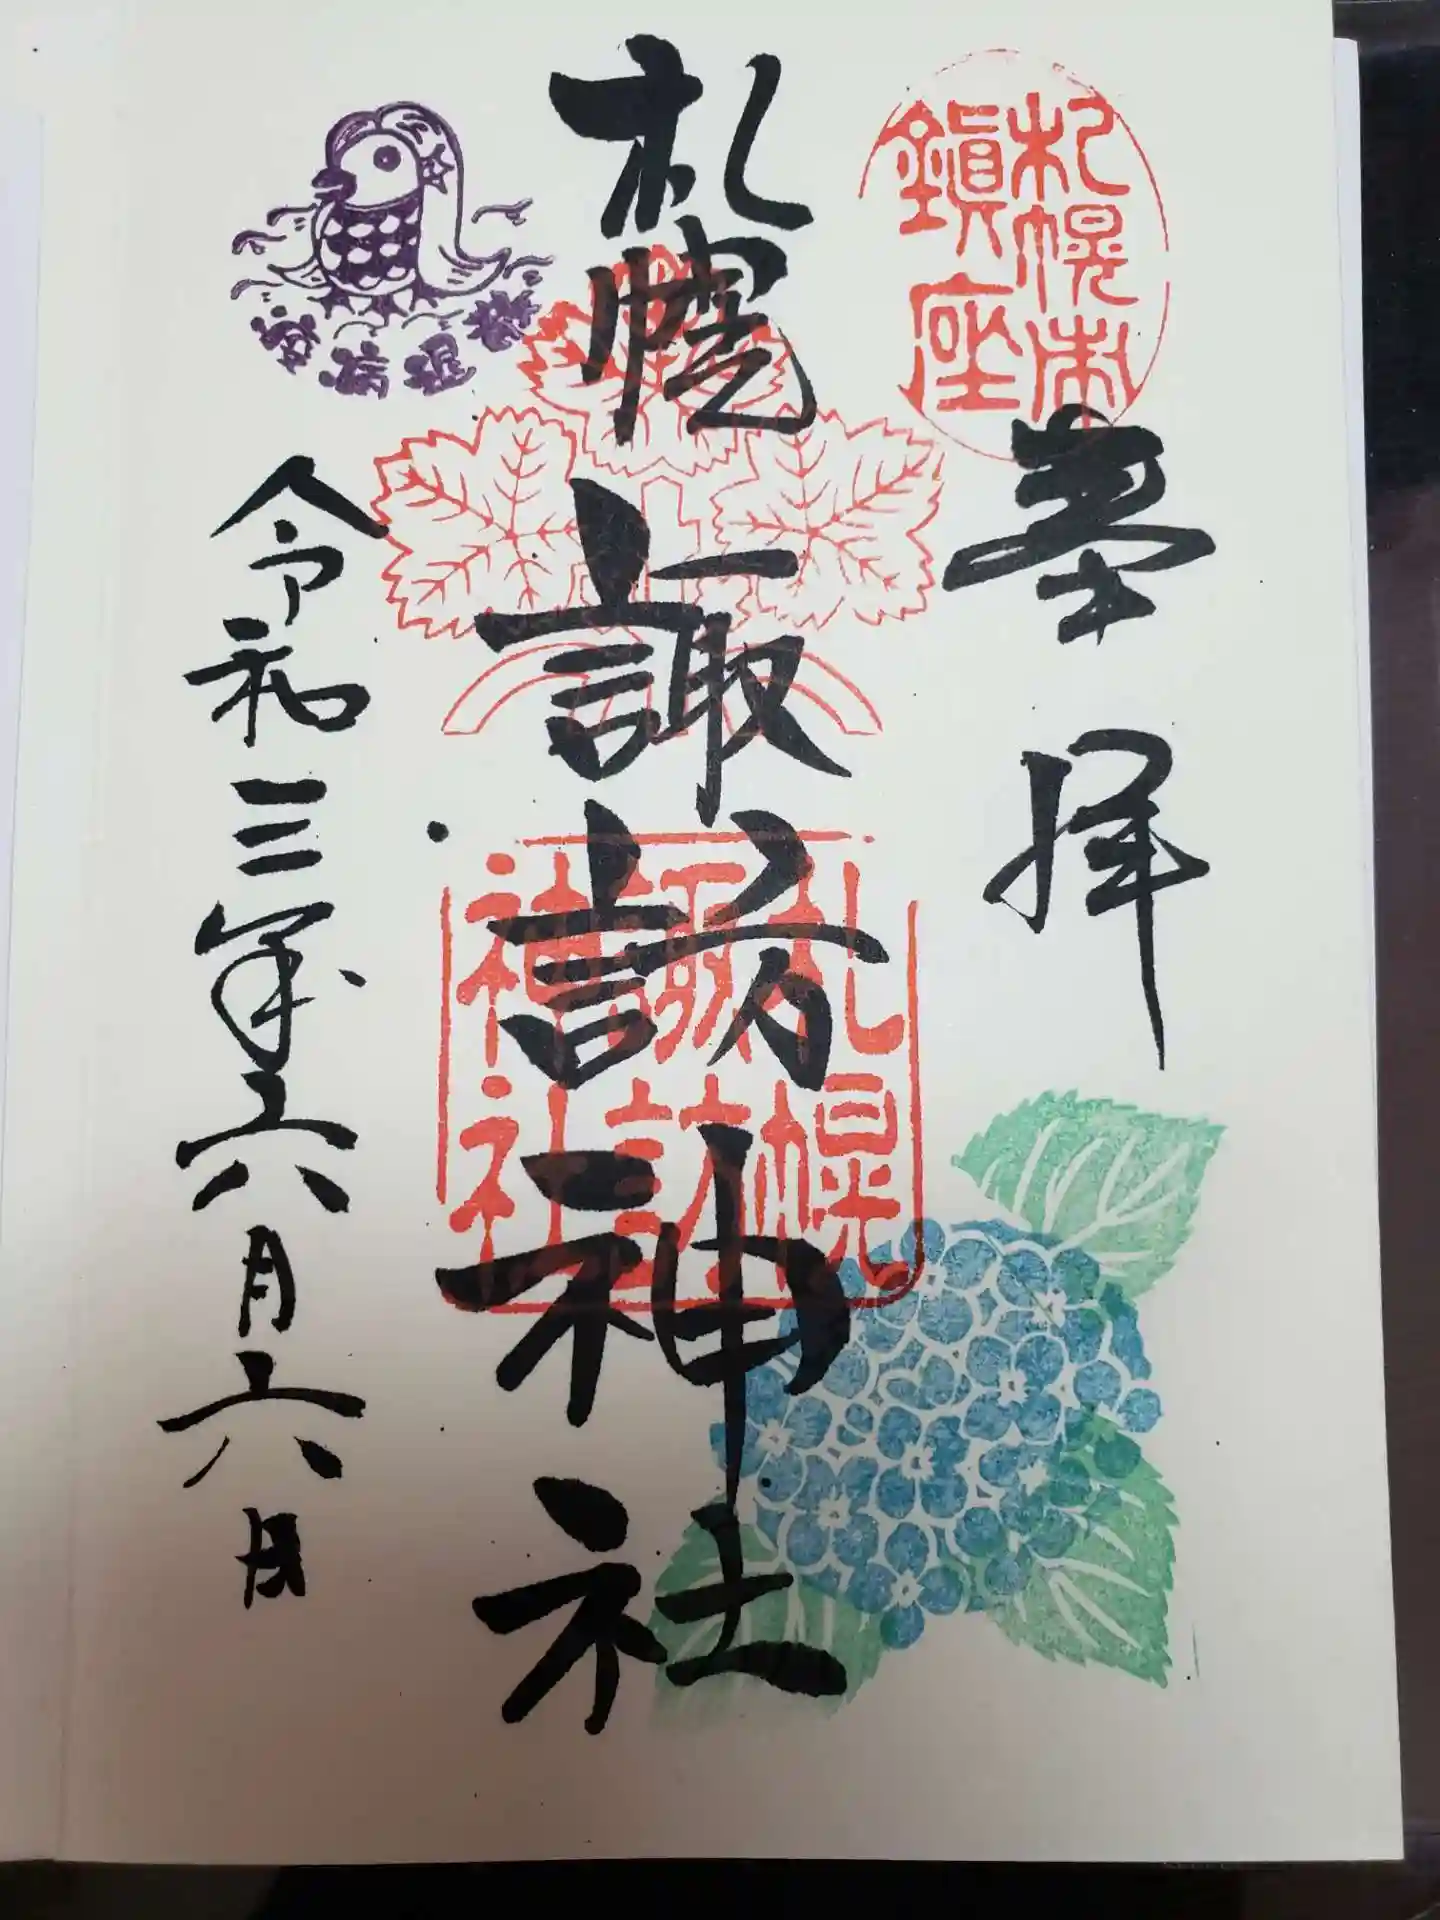 札幌市
鎮座
奉拝
札幌諏訪神社
札幌
諏訪
神社
疫病退散
令和三年六月六日